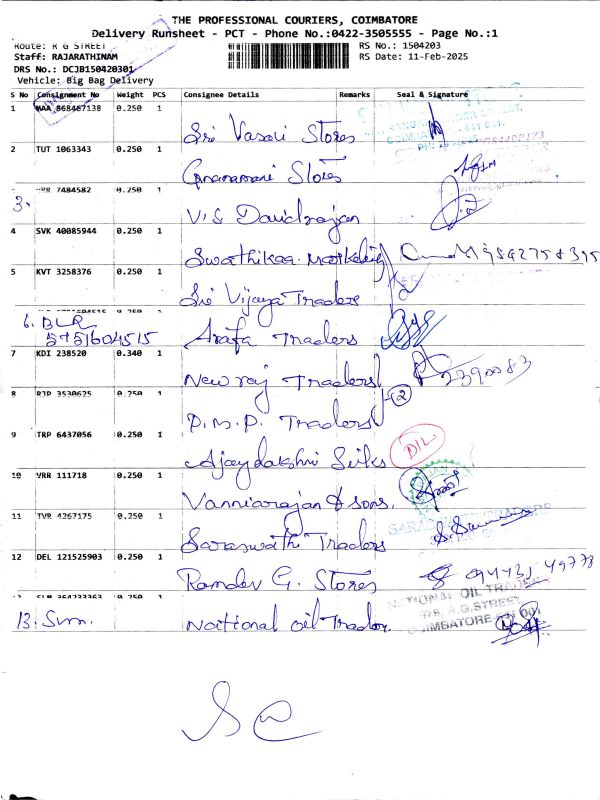 THE PROFESSIONAL COURIERS, COIMBATORE
Delivery Runsheet - PCT - Phone No.:0422-3505555 - Page No.:1
Route: R G STREET
RS No.: 1504203
Staff: RAJARATHINAM
RS Date: 11-Feb-2025
DRS No.: DCJB150420301
Vehicle: Big Bag Delivery
S No Consignment No Weight PCS Consignee Details Remarks Seal & Signature
1 MAA 868467138 0.250 1
Sri Vasavi Stores
2 TUT 1063343 0.250 1
Gnanamani Stores
3. 7484582 0.250 1
V.S Davidrajan
4 SVK 40085944 0.250 1
Swathikaa Marketing
5 KVT 3258376 0.250 1
Sri Vijaya Traders
6. BLR
Arafa Traders
7 KDI 238520 0.340 1
New raj Traders
2390083
8 RJP 3530625 0.250 1
2
P.M.P. Traders
9 TRP 6437056 0.250 1
DIL.
Ajaydakshni Silks
10 VRR 111718 0.250 1
Vanniarajan & sons.
11 TVR 4267175 0.250 1
Saraswathi Traders
12 DEL 121525903 0.250 1
Ramdev G. Stores
94435 49778
13. Svm.
National oil Trador
NATIONAL OIL TRADERS
R.G.STREET
COIMBATORE